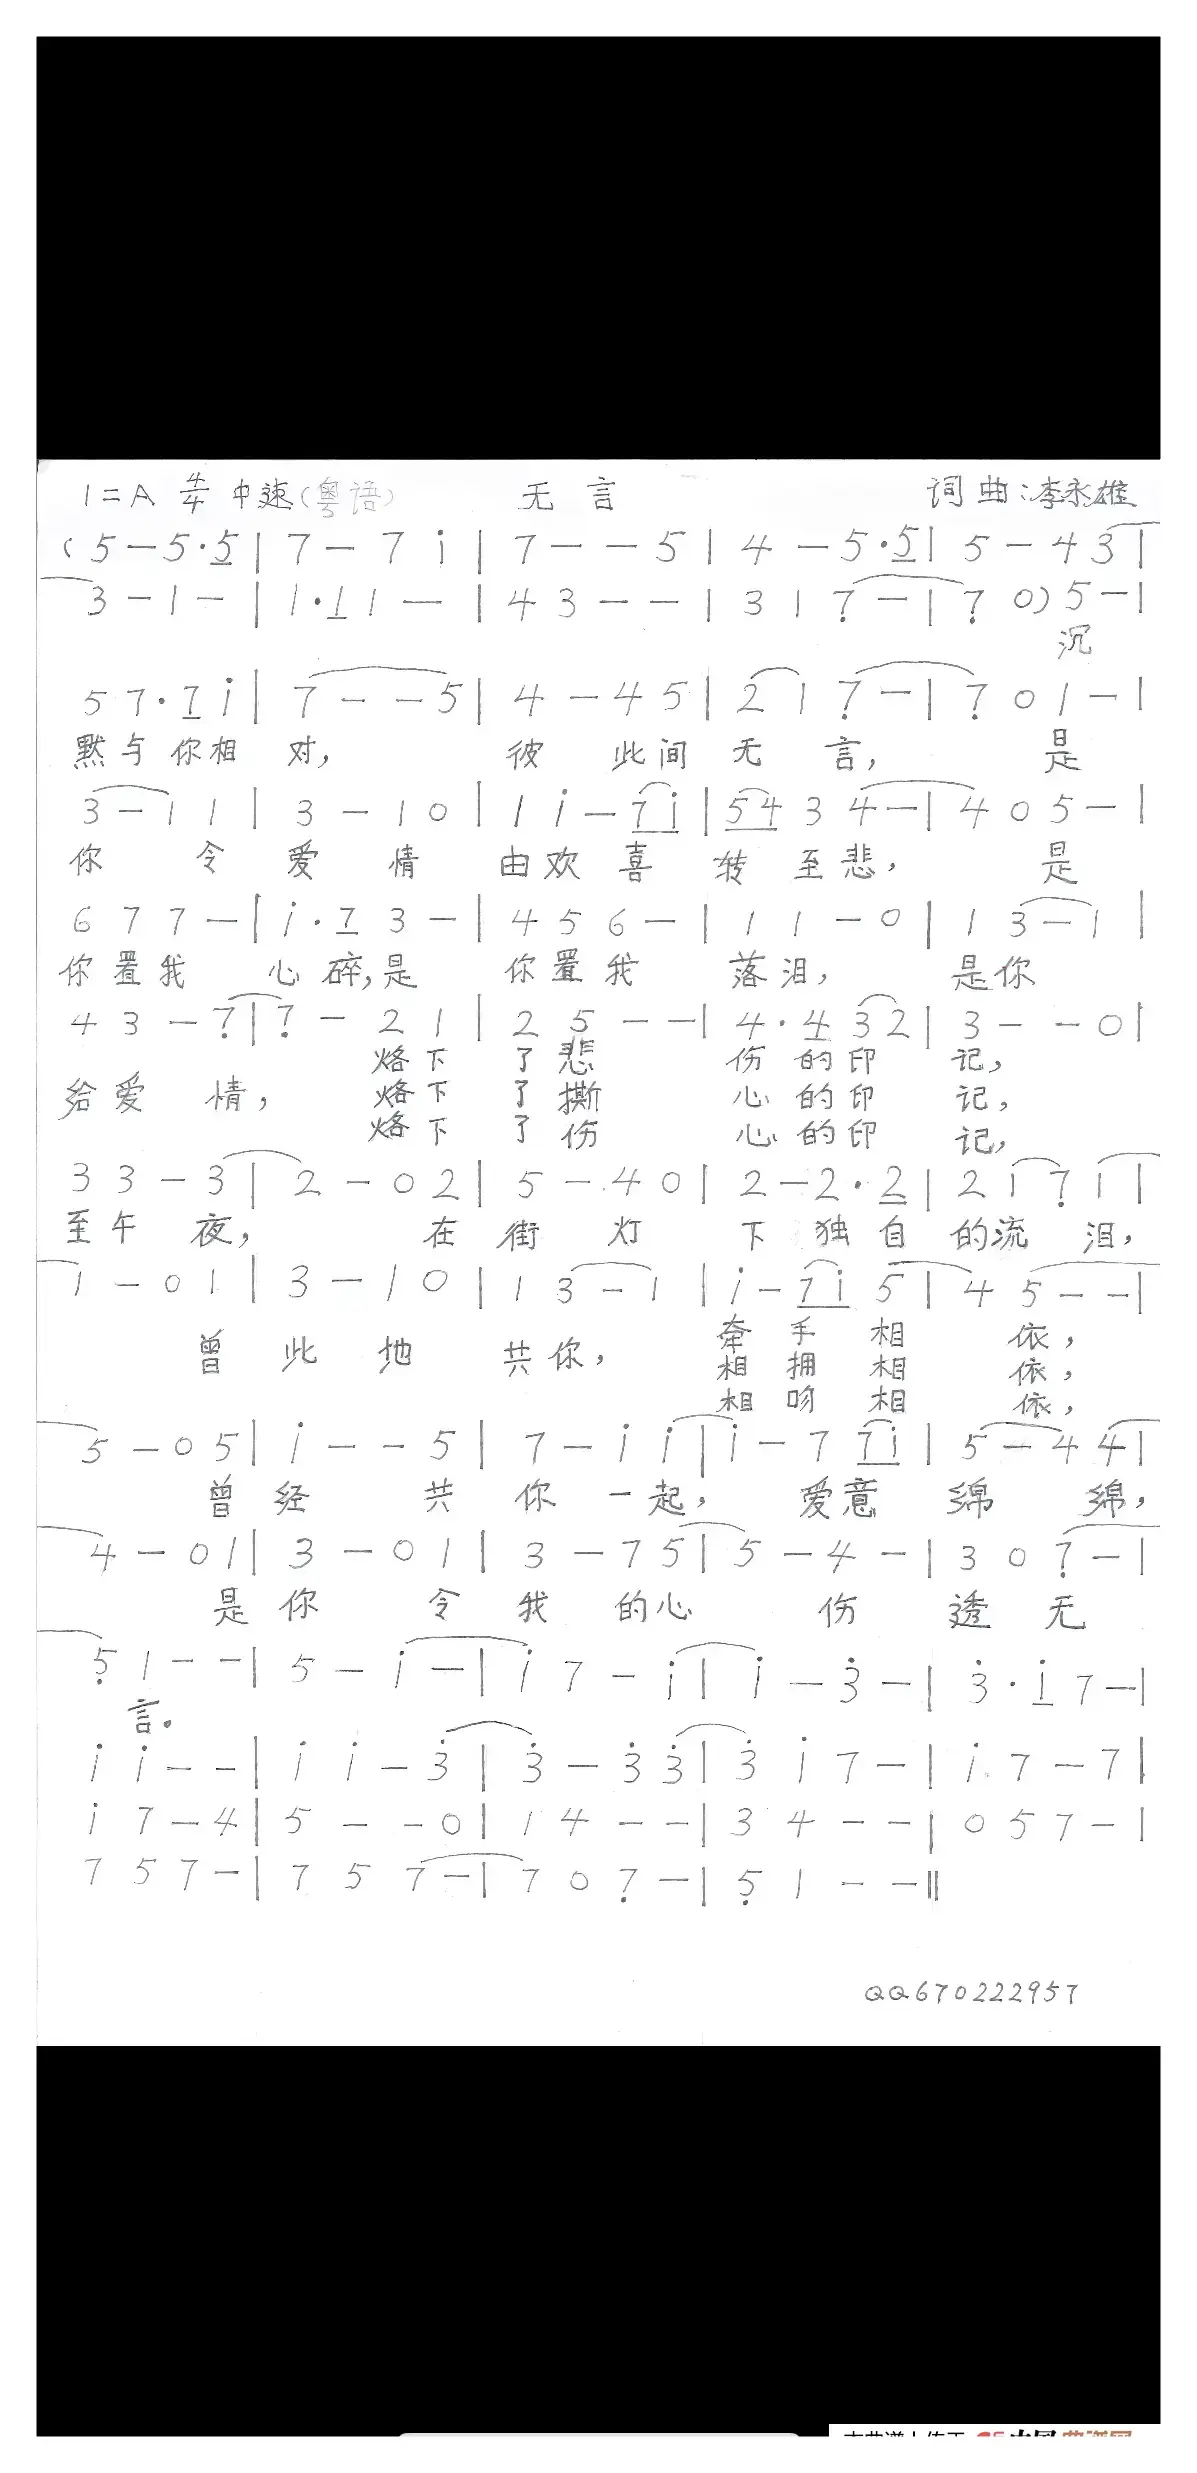 1=A 4/4 中速(粤语) 无言 词曲:李永雄
(5 - 5·5 | 7 - 7 i | 7 - - 5 | 4 - 5·5 | 5 - 4 3 |
3 - 1 - | 1·1 1 - | 4 3 - - | 3 1 7̣ - | 7̣ 0) 5 - |
沉
5 7·7 i | 7 - - 5 | 4 - 4 5 | 2 1 7̣ - | 7̣ 0 1 - |
默与你相 对, 彼 此间 无 言, 是
3 - 1 1 | 3 - 1 0 | 1 i - 7 i | 5 4 3 4 - | 4 0 5 - |
你 令 爱 情 由欢 喜 转 至悲, 是
6 7 7 - | i·7 3 - | 4 5 6 - | 1 1 - 0 | 1 3 - 1 |
你置我 心碎,是 你置我 落泪, 是你
4 3 - 7̣ | 7̣ - 2 1 | 2 5 - - | 4·4 3 2 | 3 - - 0 |
烙下 了悲 伤 的印 记,
给爱 情, 烙下 了撕 心 的印 记,
烙下 了伤 心 的印 记,
3 3 - 3 | 2 - 0 2 | 5 - 4 0 | 2 - 2·2 | 2 1 7̣ 1 |
至午 夜, 在 街 灯 下 独自 的流 泪,
1 - 0 1 | 3 - 1 0 | 1 3 - 1 | i - 7 i 5 | 4 5 - - |
牵 手 相 依,
曾 此 地 共你, 相 拥 相 依,
相 吻 相 依,
5 - 0 5 | i - - 5 | 7 - i i | i - 7 7 i | 5 - 4 4 - |
曾 经 共 你 一起, 爱意 绵 绵,
4 - 0 1 | 3 - 0 1 | 3 - 7 5 | 5 - 4 - | 3 0 7̣ - |
是 你 令 我 的心 伤 透 无
5̣ 1 - - | 5 - i - | i 7 - i | i - 3̇ - | 3̇·i 7 - |
言。
i i - - | i i - 3̇ | 3̇ - 3̇ 3̇ | 3̇ i 7 - | i 7 - 7 |
i 7 - 4 | 5 - - 0 | 1 4 - - | 3 4 - - | 0 5 7 - |
7 5 7 - | 7 5 7 - | 7 0 7̣ - | 5̣ 1 - - ‖
QQ670222957